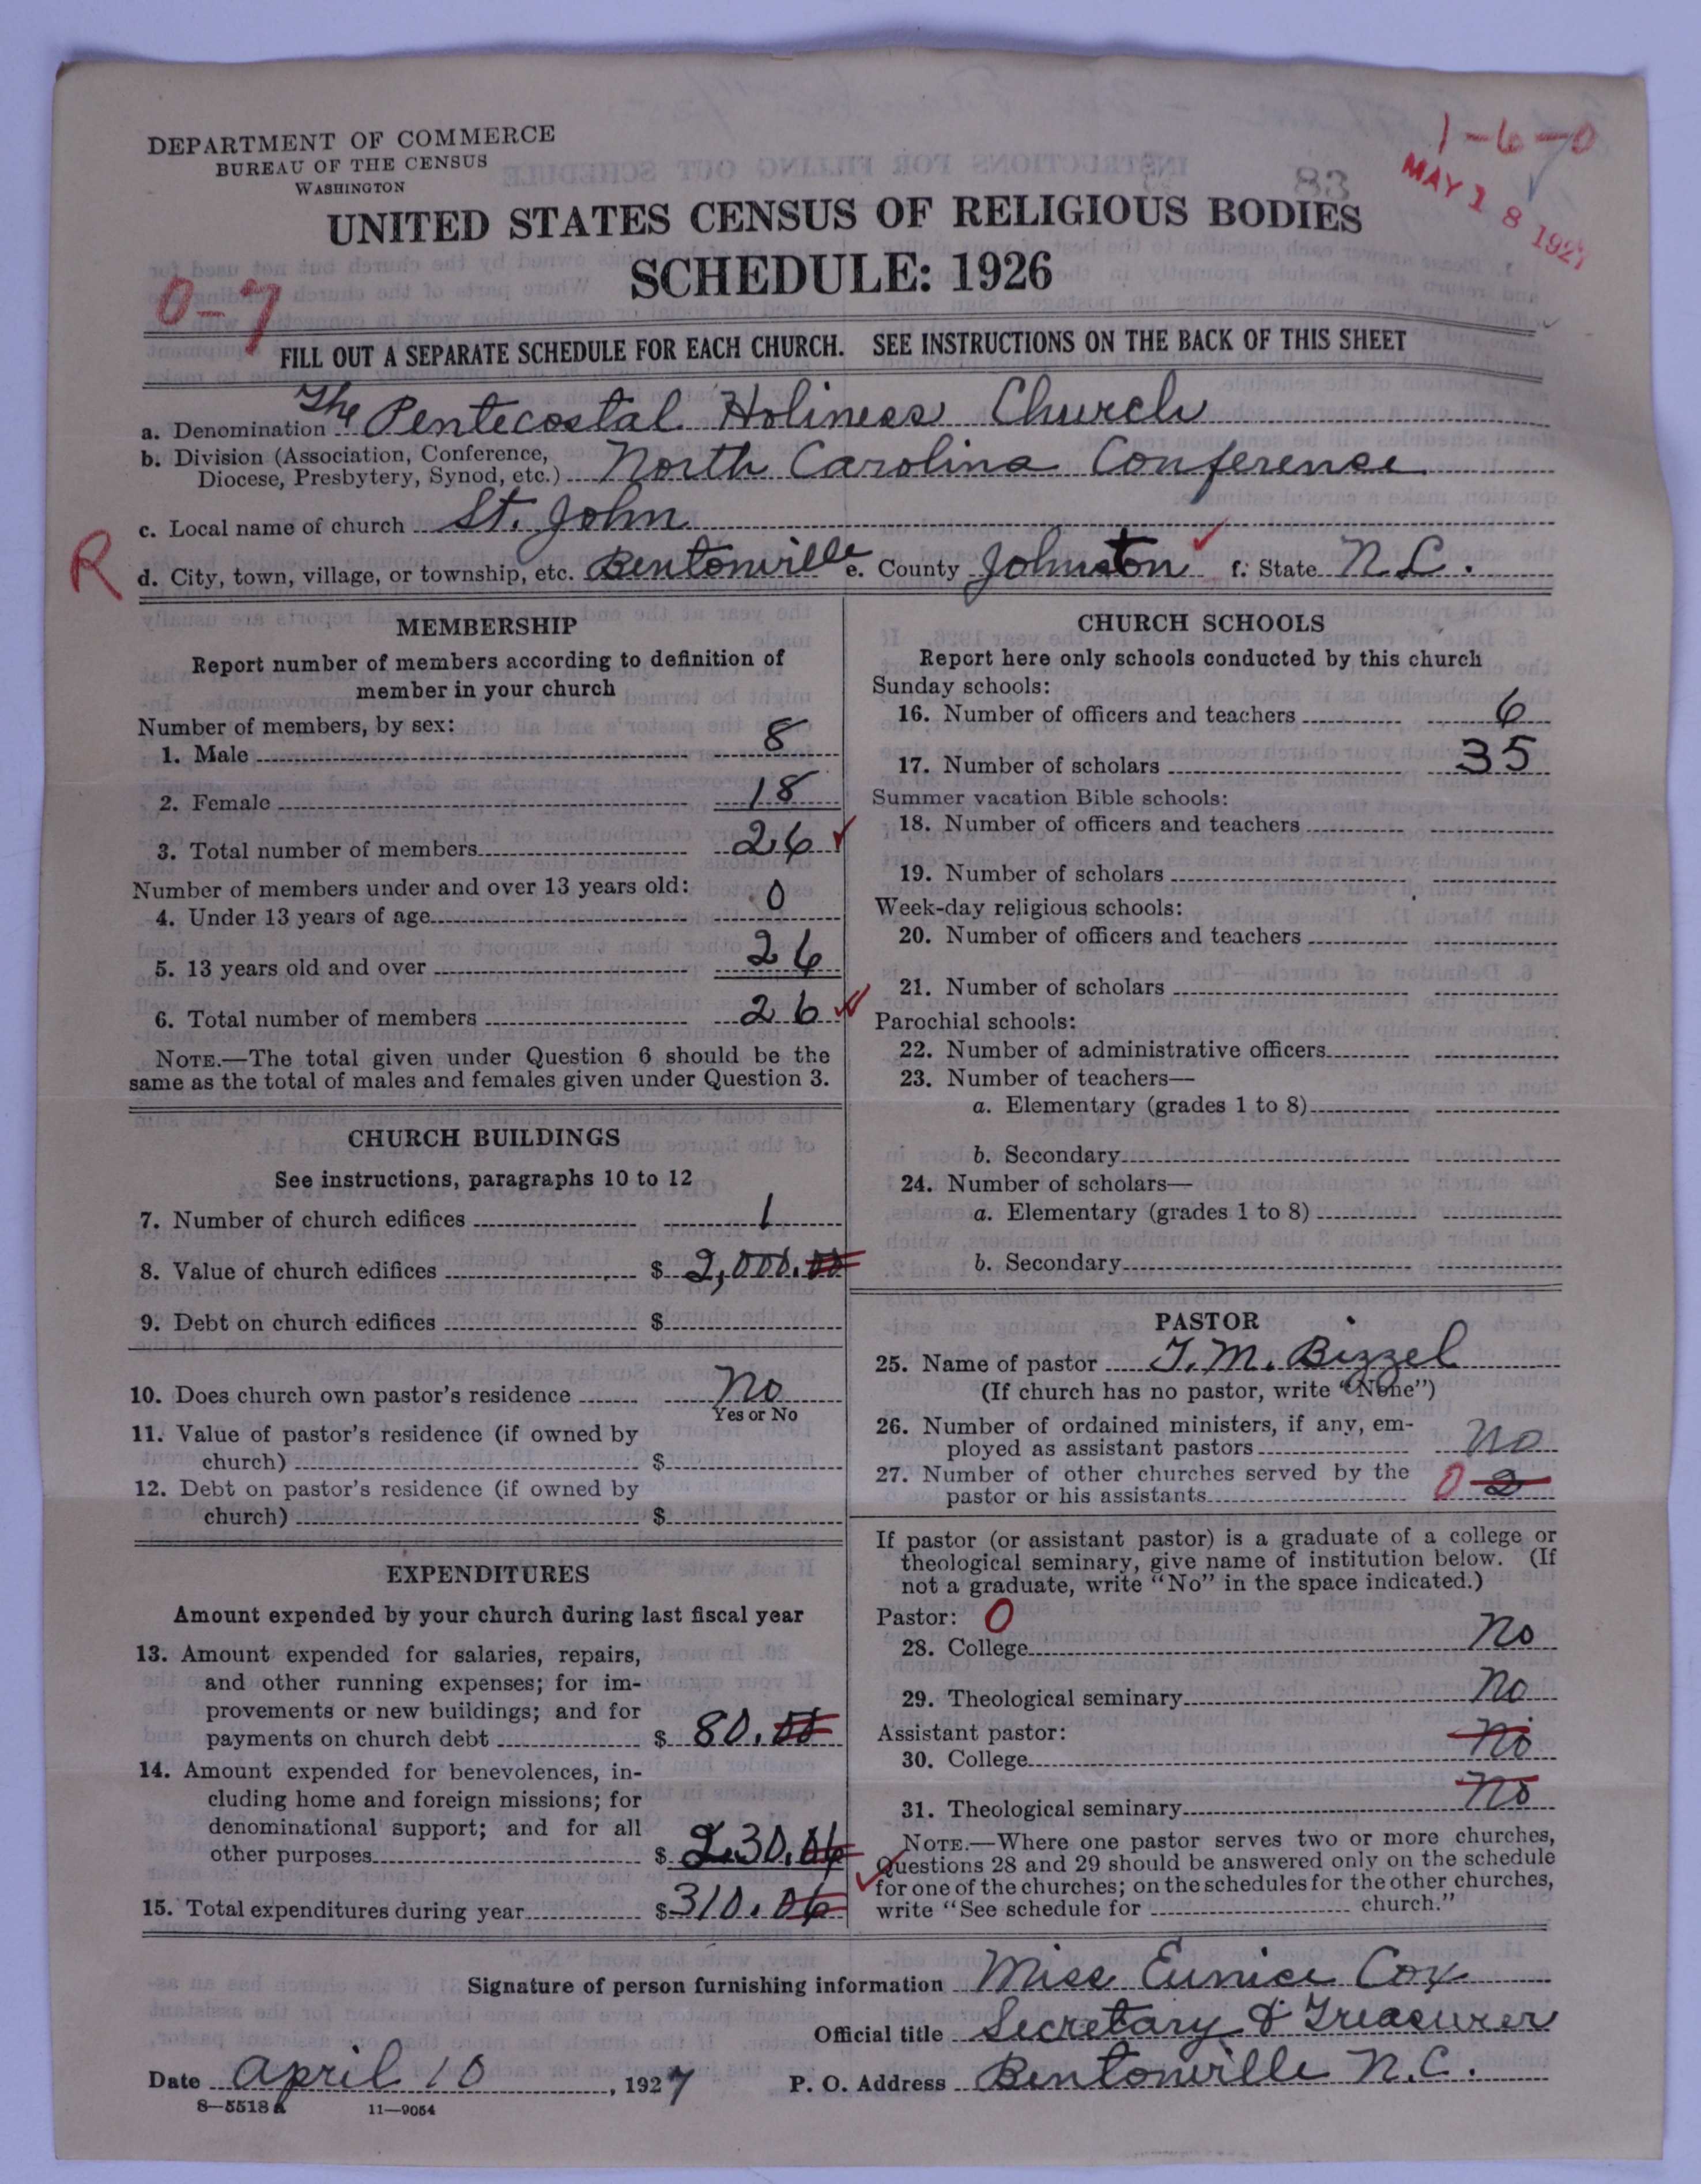 1-6-0
DEPARTMENT OF COMMERCE
BUREAU OF THE CENSUS
WASHINGTON
83
MAY 18 1927
UNITED STATES CENSUS OF RELIGIOUS BODIES
SCHEDULE: 1926
0-7
FILL OUT A SEPARATE SCHEDULE FOR EACH CHURCH. SEE INSTRUCTIONS ON THE BACK OF THIS SHEET
a. Denomination The Pentecostal Holiness Church
b. Division (Association, Conference,
Diocese, Presbytery, Synod, etc.) North Carolina Conference
c. Local name of church St. John
R d. City, town, village, or township, etc. Bentonville e. County Johnston f. State N.C.
MEMBERSHIP
Report number of members according to definition of
member in your church
Number of members, by sex:
1. Male 8
2. Female 18
3. Total number of members 26
Number of members under and over 13 years old:
4. Under 13 years of age 0
5. 13 years old and over 26
6. Total number of members 26
NOTE.—The total given under Question 6 should be the
same as the total of males and females given under Question 3.
CHURCH BUILDINGS
See instructions, paragraphs 10 to 12
7. Number of church edifices 1
8. Value of church edifices $ 2,000.00
9. Debt on church edifices $
10. Does church own pastor's residence No
Yes or No
11. Value of pastor's residence (if owned by
church) $
12. Debt on pastor's residence (if owned by
church) $
EXPENDITURES
Amount expended by your church during last fiscal year
13. Amount expended for salaries, repairs,
and other running expenses; for im-
provements or new buildings; and for
payments on church debt $ 80.00
14. Amount expended for benevolences, in-
cluding home and foreign missions; for
denominational support; and for all
other purposes $ 230.06
15. Total expenditures during year $ 310.06
CHURCH SCHOOLS
Report here only schools conducted by this church
Sunday schools:
16. Number of officers and teachers 6
17. Number of scholars 35
Summer vacation Bible schools:
18. Number of officers and teachers
19. Number of scholars
Week-day religious schools:
20. Number of officers and teachers
21. Number of scholars
Parochial schools:
22. Number of administrative officers
23. Number of teachers—
a. Elementary (grades 1 to 8)
b. Secondary
24. Number of scholars—
a. Elementary (grades 1 to 8)
b. Secondary
PASTOR
25. Name of pastor T. M. Bizzel
(If church has no pastor, write "None")
26. Number of ordained ministers, if any, em-
ployed as assistant pastors No
27. Number of other churches served by the
pastor or his assistants 0 2
If pastor (or assistant pastor) is a graduate of a college or
theological seminary, give name of institution below. (If
not a graduate, write "No" in the space indicated.)
Pastor: 0
28. College No
29. Theological seminary No
Assistant pastor:
30. College No
31. Theological seminary No
NOTE.—Where one pastor serves two or more churches,
Questions 28 and 29 should be answered only on the schedule
for one of the churches; on the schedules for the other churches,
write "See schedule for church."
Signature of person furnishing information Miss Eunice Cox
Official title Secretary & Treasurer
Date April 10, 1927 P. O. Address Bentonville N.C.
8—5518a 11—9054